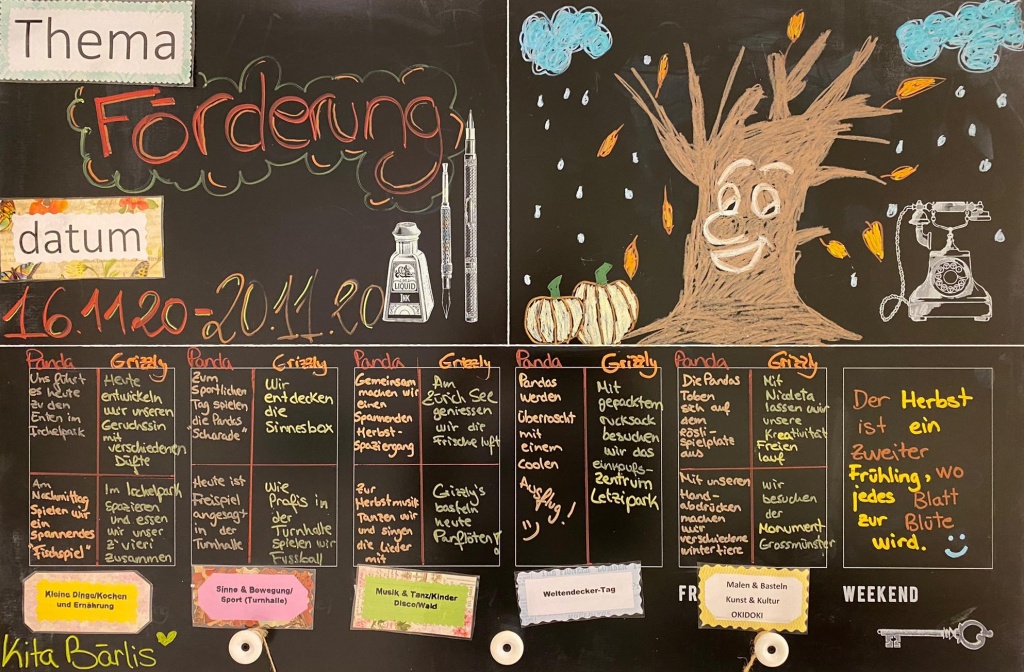 Thema
Förderung
datum
16.11.20-20.11.20
LIQUID
INK
Panda
Grizzly
Uns führt
es heute
zu den
Enten im
Irchelpark
Heute
entwickeln
wir unseren
Geruchssin
mit
verschiedenen
Düfte
Am
Nachmittag
Spielen wir
ein
spannendes
"Fischspiel"
Im Irchelpark
spazieren
und essen
wir unser
z'vieri
zusammen
Panda
Grizzly
Zum
Sportlichen
Tag spielen
die Pandas
"Scharade"
Wir
entdecken
die
Sinnesbox
Heute ist
Freispiel
angesagt
in der
Turnhalle
Wie
Profis in
der
Turnhalle
spielen wir
Fussball
Panda
Grizzly
Gemeinsam
machen wir
einen
Spannenden
Herbst-
Spaziergang
Am
Zürich See
geniessen
wir die
Frische luft
Zur
Herbstmusik
Tanzen wir
und singen
die Lieder
mit
Grizzly's
basteln
heute
Panflöten!
Panda
Grizzly
Pandas
werden
Überrascht
mit
einem
Coolen
Ausflug!
Mit
gepacktem
rucksack
besuchen
wir das
einkaufs-
zentrum
Letzipark
Panda
Grizzly
Die Pandas
Toben
sich auf
dem
Rösli-
spielplatz
aus
Mit
Nicoleta
lassen wir
unsere
Kreativität
Freien
lauf
Mit unseren
Hand-
abdrücken
machen
wir
verschiedene
wintertiere
wir
besuchen
der
Monument
Grossmünster
Der Herbst
ist ein
zweiter
Frühling, wo
jedes Blatt
zur Blüte
wird.
Kleine Dinge/Kochen
und Ernährung
Sinne & Bewegung/
Sport (Turnhalle)
Musik & Tanz/Kinder
Disco/Wald
Weltendecker-Tag
FR
Malen & Basteln
Kunst & Kultur
OKIDOKI
WEEKEND
Kita Bärlis